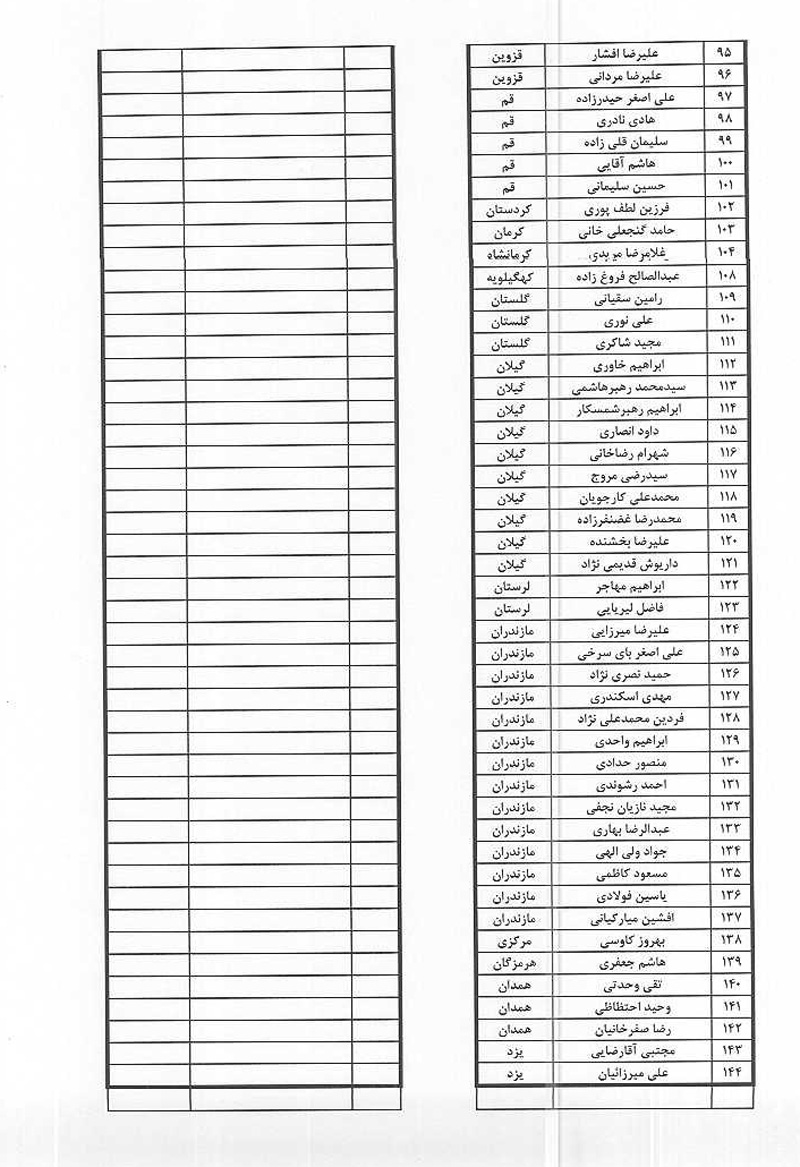 ۹۵ علیرضا افشار قزوین
۹۶ علیرضا مردانی قزوین
۹۷ علی اصغر حیدرزاده قم
۹۸ هادی نادری قم
۹۹ سلیمان قلی زاده قم
۱۰۰ هاشم آقایی قم
۱۰۱ حسین سلیمانی قم
۱۰۲ فرزین لطف پوری کردستان
۱۰۳ حامد گنجعلی خانی کرمان
۱۰۴ غلامرضا مریدی کرمانشاه
۱۰۸ عبدالصالح فروغ زاده کهگیلویه
۱۰۹ رامین سقیانی گلستان
۱۱۰ علی نوری گلستان
۱۱۱ مجید شاکری گلستان
۱۱۲ ابراهیم خاوری گیلان
۱۱۳ سیدمحمد رهبرهاشمی گیلان
۱۱۴ ابراهیم رهبرشمسکار گیلان
۱۱۵ داود انصاری گیلان
۱۱۶ شهرام رضاخانی گیلان
۱۱۷ سیدرضی مروج گیلان
۱۱۸ محمدعلی کارجویان گیلان
۱۱۹ محمدرضا غضنفرزاده گیلان
۱۲۰ علیرضا بخشنده گیلان
۱۲۱ داریوش قدیمی نژاد گیلان
۱۲۲ ابراهیم مهاجر لرستان
۱۲۳ فاضل لیریایی لرستان
۱۲۴ علیرضا میرزایی مازندران
۱۲۵ علی اصغر بای سرخی مازندران
۱۲۶ حمید نصری نژاد مازندران
۱۲۷ مهدی اسکندری مازندران
۱۲۸ فردین محمدعلی نژاد مازندران
۱۲۹ ابراهیم واحدی مازندران
۱۳۰ منصور حدادی مازندران
۱۳۱ احمد رشوندی مازندران
۱۳۲ مجید نازیان نجفی مازندران
۱۳۳ عبدالرضا بهاری مازندران
۱۳۴ جواد ولی الهی مازندران
۱۳۵ مسعود کاظمی مازندران
۱۳۶ یاسین فولادی مازندران
۱۳۷ افشین میارکیانی مازندران
۱۳۸ بهروز کاوسی مرکزی
۱۳۹ هاشم جعفری هرمزگان
۱۴۰ تقی وحدتی همدان
۱۴۱ وحید احتظاظی همدان
۱۴۲ رضا صفرخانیان همدان
۱۴۳ مجتبی آقارضایی یزد
۱۴۴ علی میرزائیان یزد